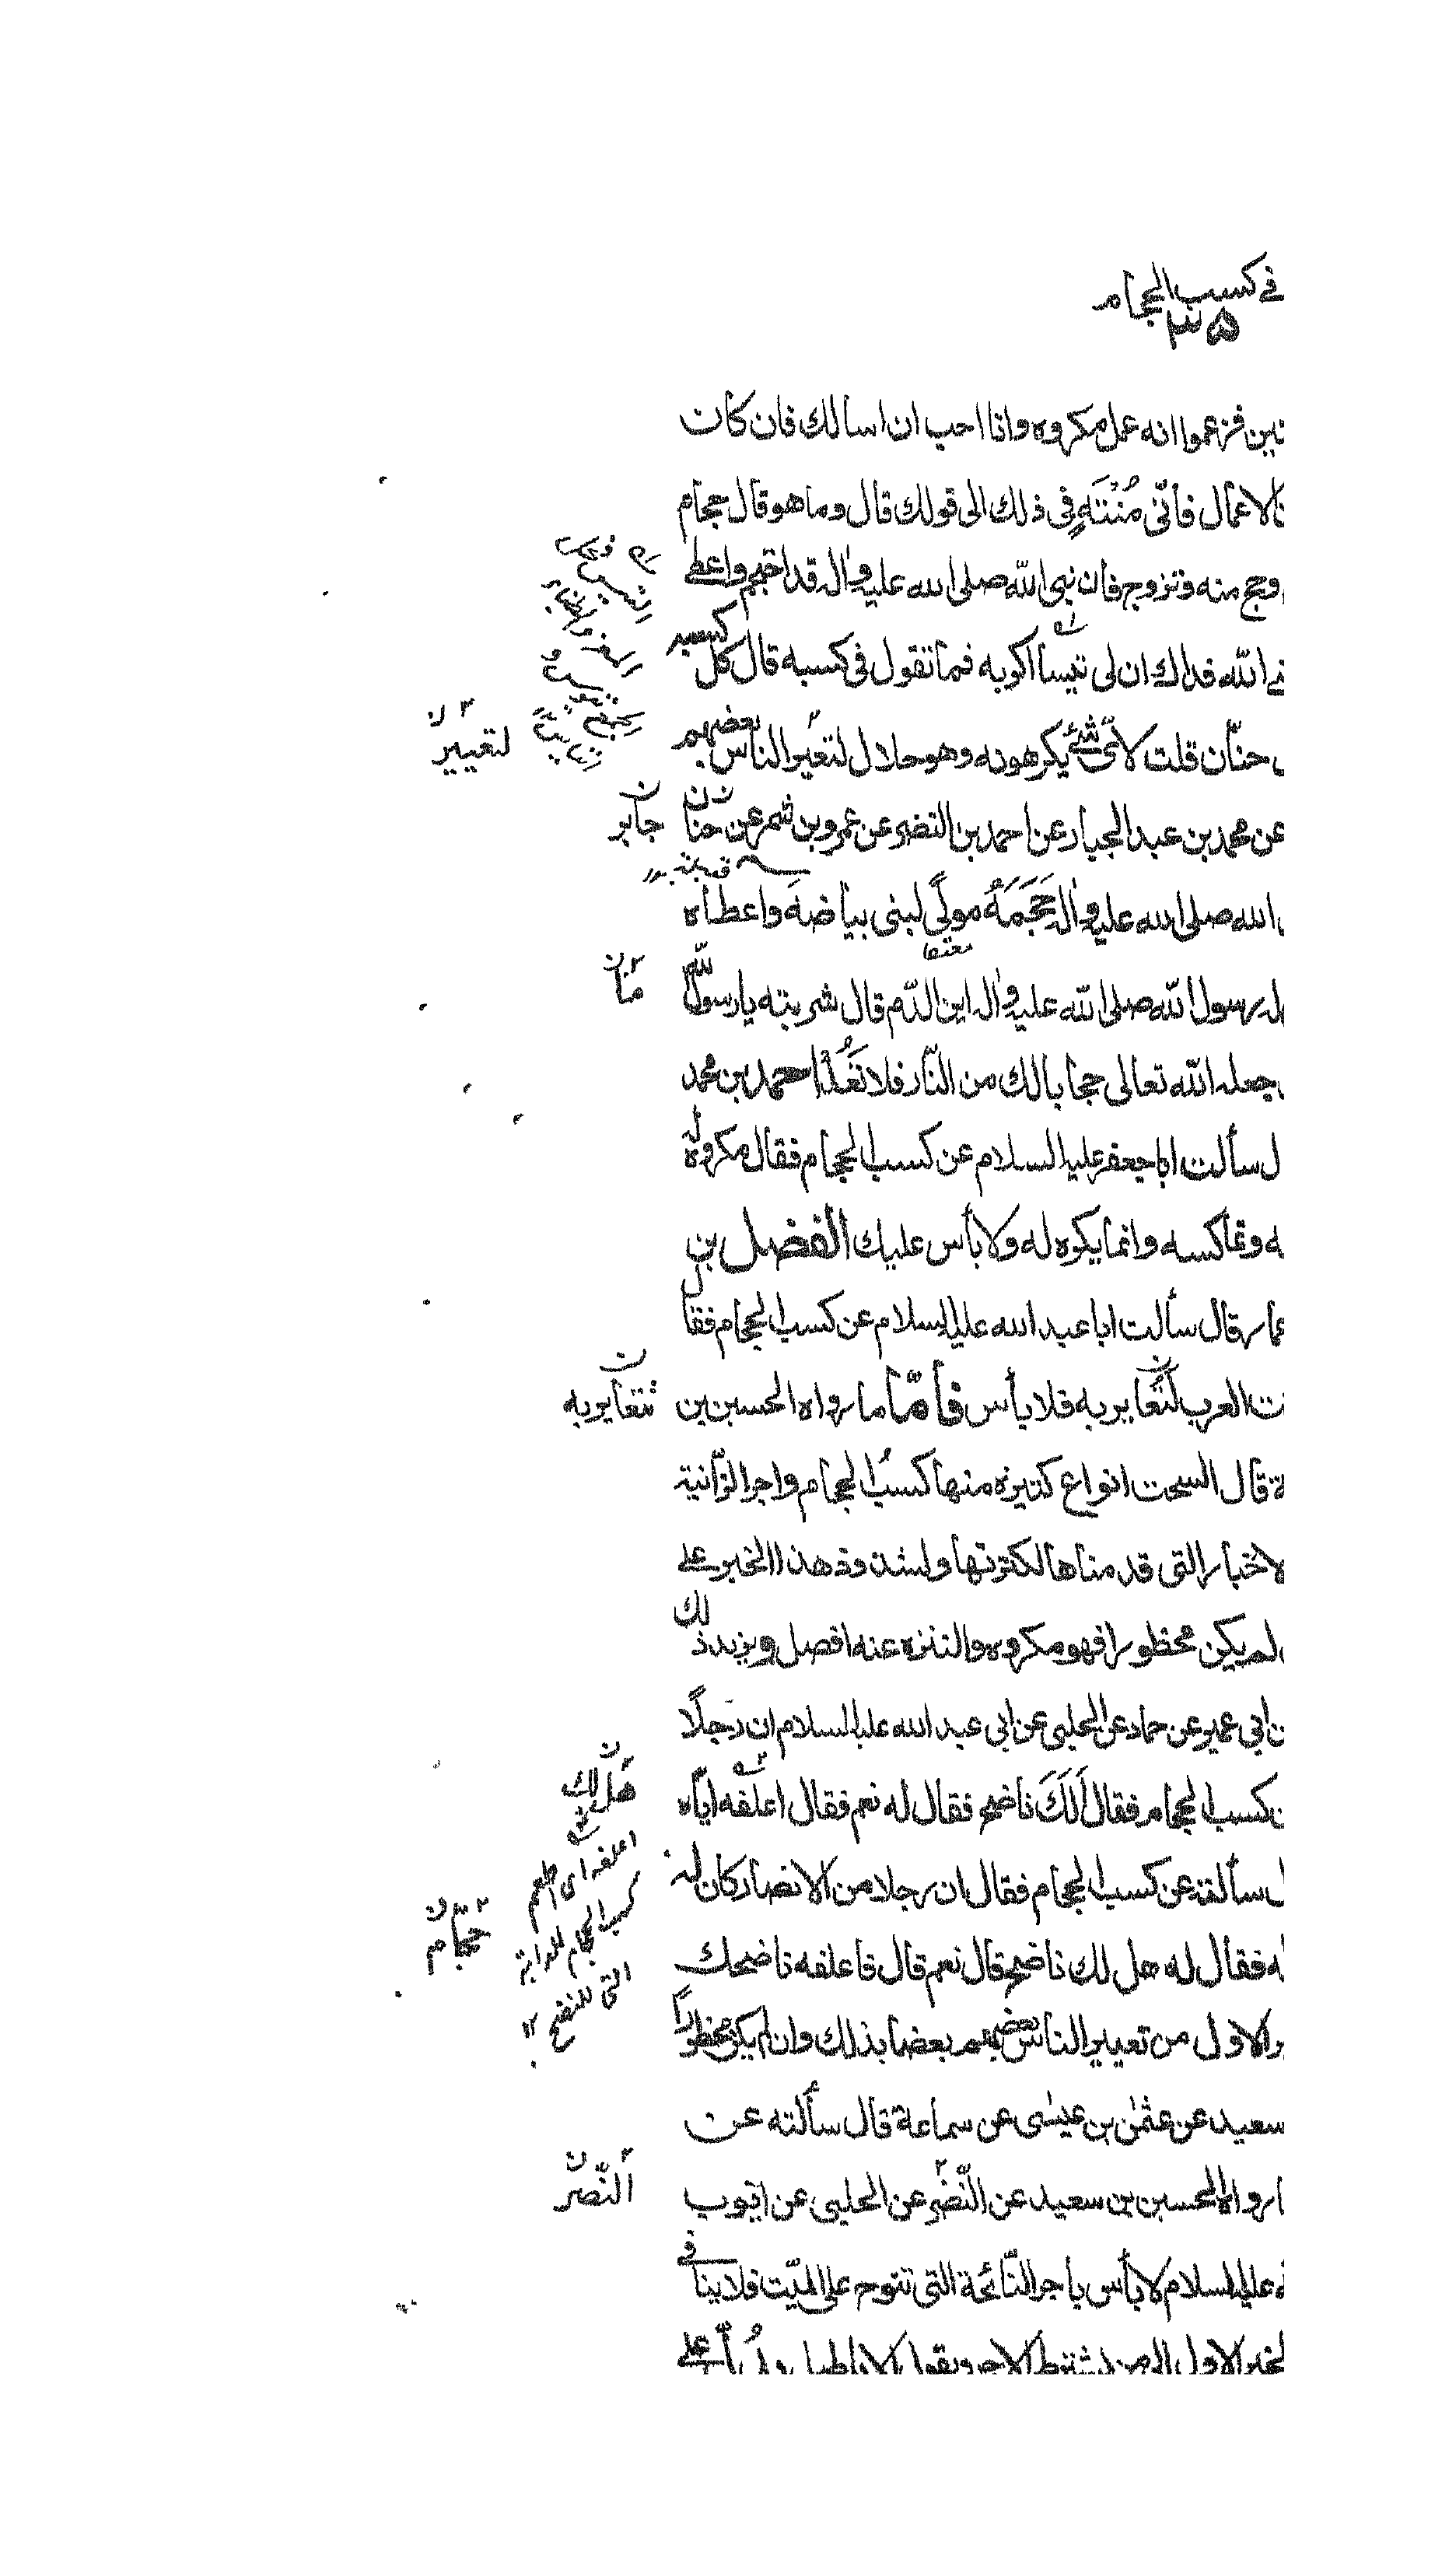 في كسب الحجام
٣٥
فزعموا انه عمل مكروه وانا احب ان اسالك فان كان
الاعمال فانّى مُنْتَهٍ في ذلك الى قولك قال وما هو قال حجام
وحج منه وتزوج فان نبى الله صلى الله عليه واله قد احتجم واعطى
الله فداك ان لى تيسا اكريه فما تقول في كسبه قال كل كسبه
حنّان قلت لاىّ شئ يكرهونه وهو حلال لتعيّر الناس بعضهم
لتعيير
عن محمد بن عبد الجبار عن احمد بن النضر عن عمرو بن شمر عن حنان
جابر
الله صلى الله عليه واله حَجَمَهُ مولًى لبنى بياضة واعطاه
رسول الله صلى الله عليه واله اين الدّم قال شربته يا رسول الله
جعله الله تعالى حجابا لك من النّار فلا تَعُد احمد بن محمد
ل سألت ابا جعفر عليه السلام عن كسب الحجام فقال مكروه له
ه وتماكسه وانما يكره له ولا بأس عليك الفضل بن
عمار قال سألت ابا عبد الله عليه السلام عن كسب الحجام فقال
العرب لتتعاير به فلا بأس فأمّا ما رواه الحسين بن
تتعاير به
ة قال السحت انواع كثيرة منها كسب الحجام واجر الزّانية
لاخبار التى قدمناها لكثرتها ولشذوذ هذا الخبر على
لم يكن محظورا فهو مكروه والتنزه عنه افضل ويزيد ذلك
ابي عمير عن حماد عن الحلبى عن ابى عبد الله عليه السلام ان رجلًا
كسب الحجام فقال أَلَكَ ناضح فقال له نعم فقال اعلفه ايّاه
هل لك
اعلفه اى اطعم
كسب الحجام للدابة
التى للنضح ١٢
ل سألته عن كسب الحجام فقال ان رجلا من الانصار كان له
حجّام
ه فقال له هل لك ناضح قال نعم قال فاعلفه ناضحك
الاول من تعيير الناس بعضهم بعضا بذلك وان لم يكن محظورًا
سعيد عن عثمٰن بن عيسٰى عن سماعة قال سألته عن
رواه الحسين بن سعيد عن النّضر عن الحلبى عن ايّوب
النّصر
عليه السلام لا بأس باجر النّائحة التى تنوح على الميّت فلا ينافى